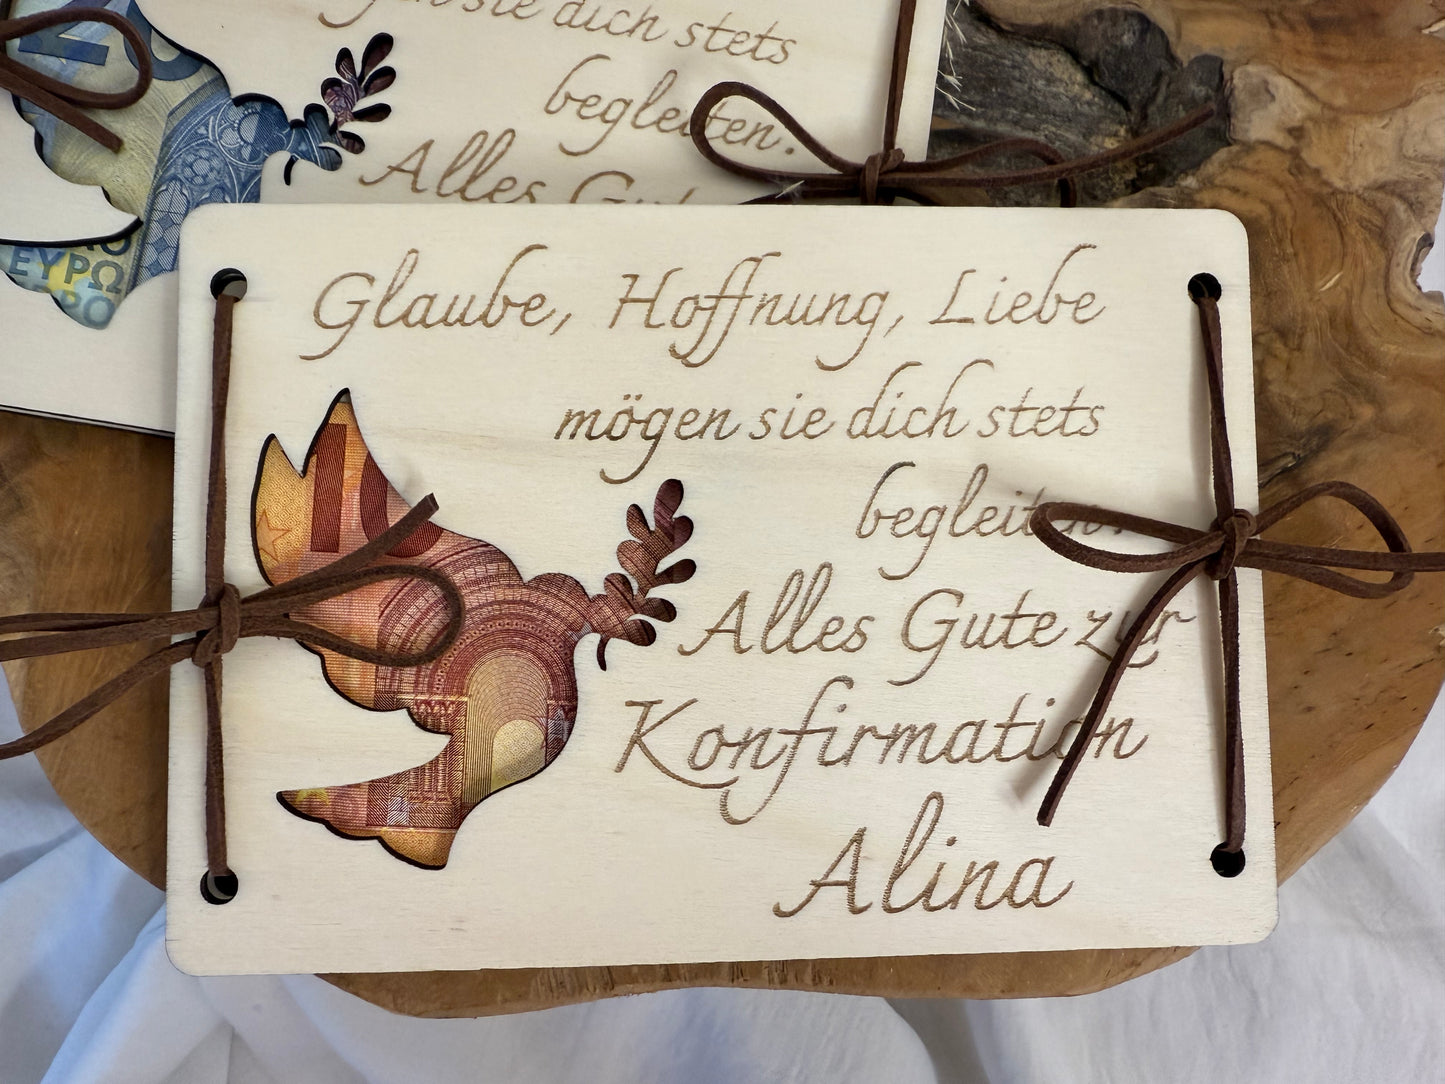 sie dich stets
begleiten.
Alles
20
ΕΥΡΩ
Glaube, Hoffnung, Liebe
mögen sie dich stets
begleiten.
Alles Gute zur
Konfirmation
Alina
10